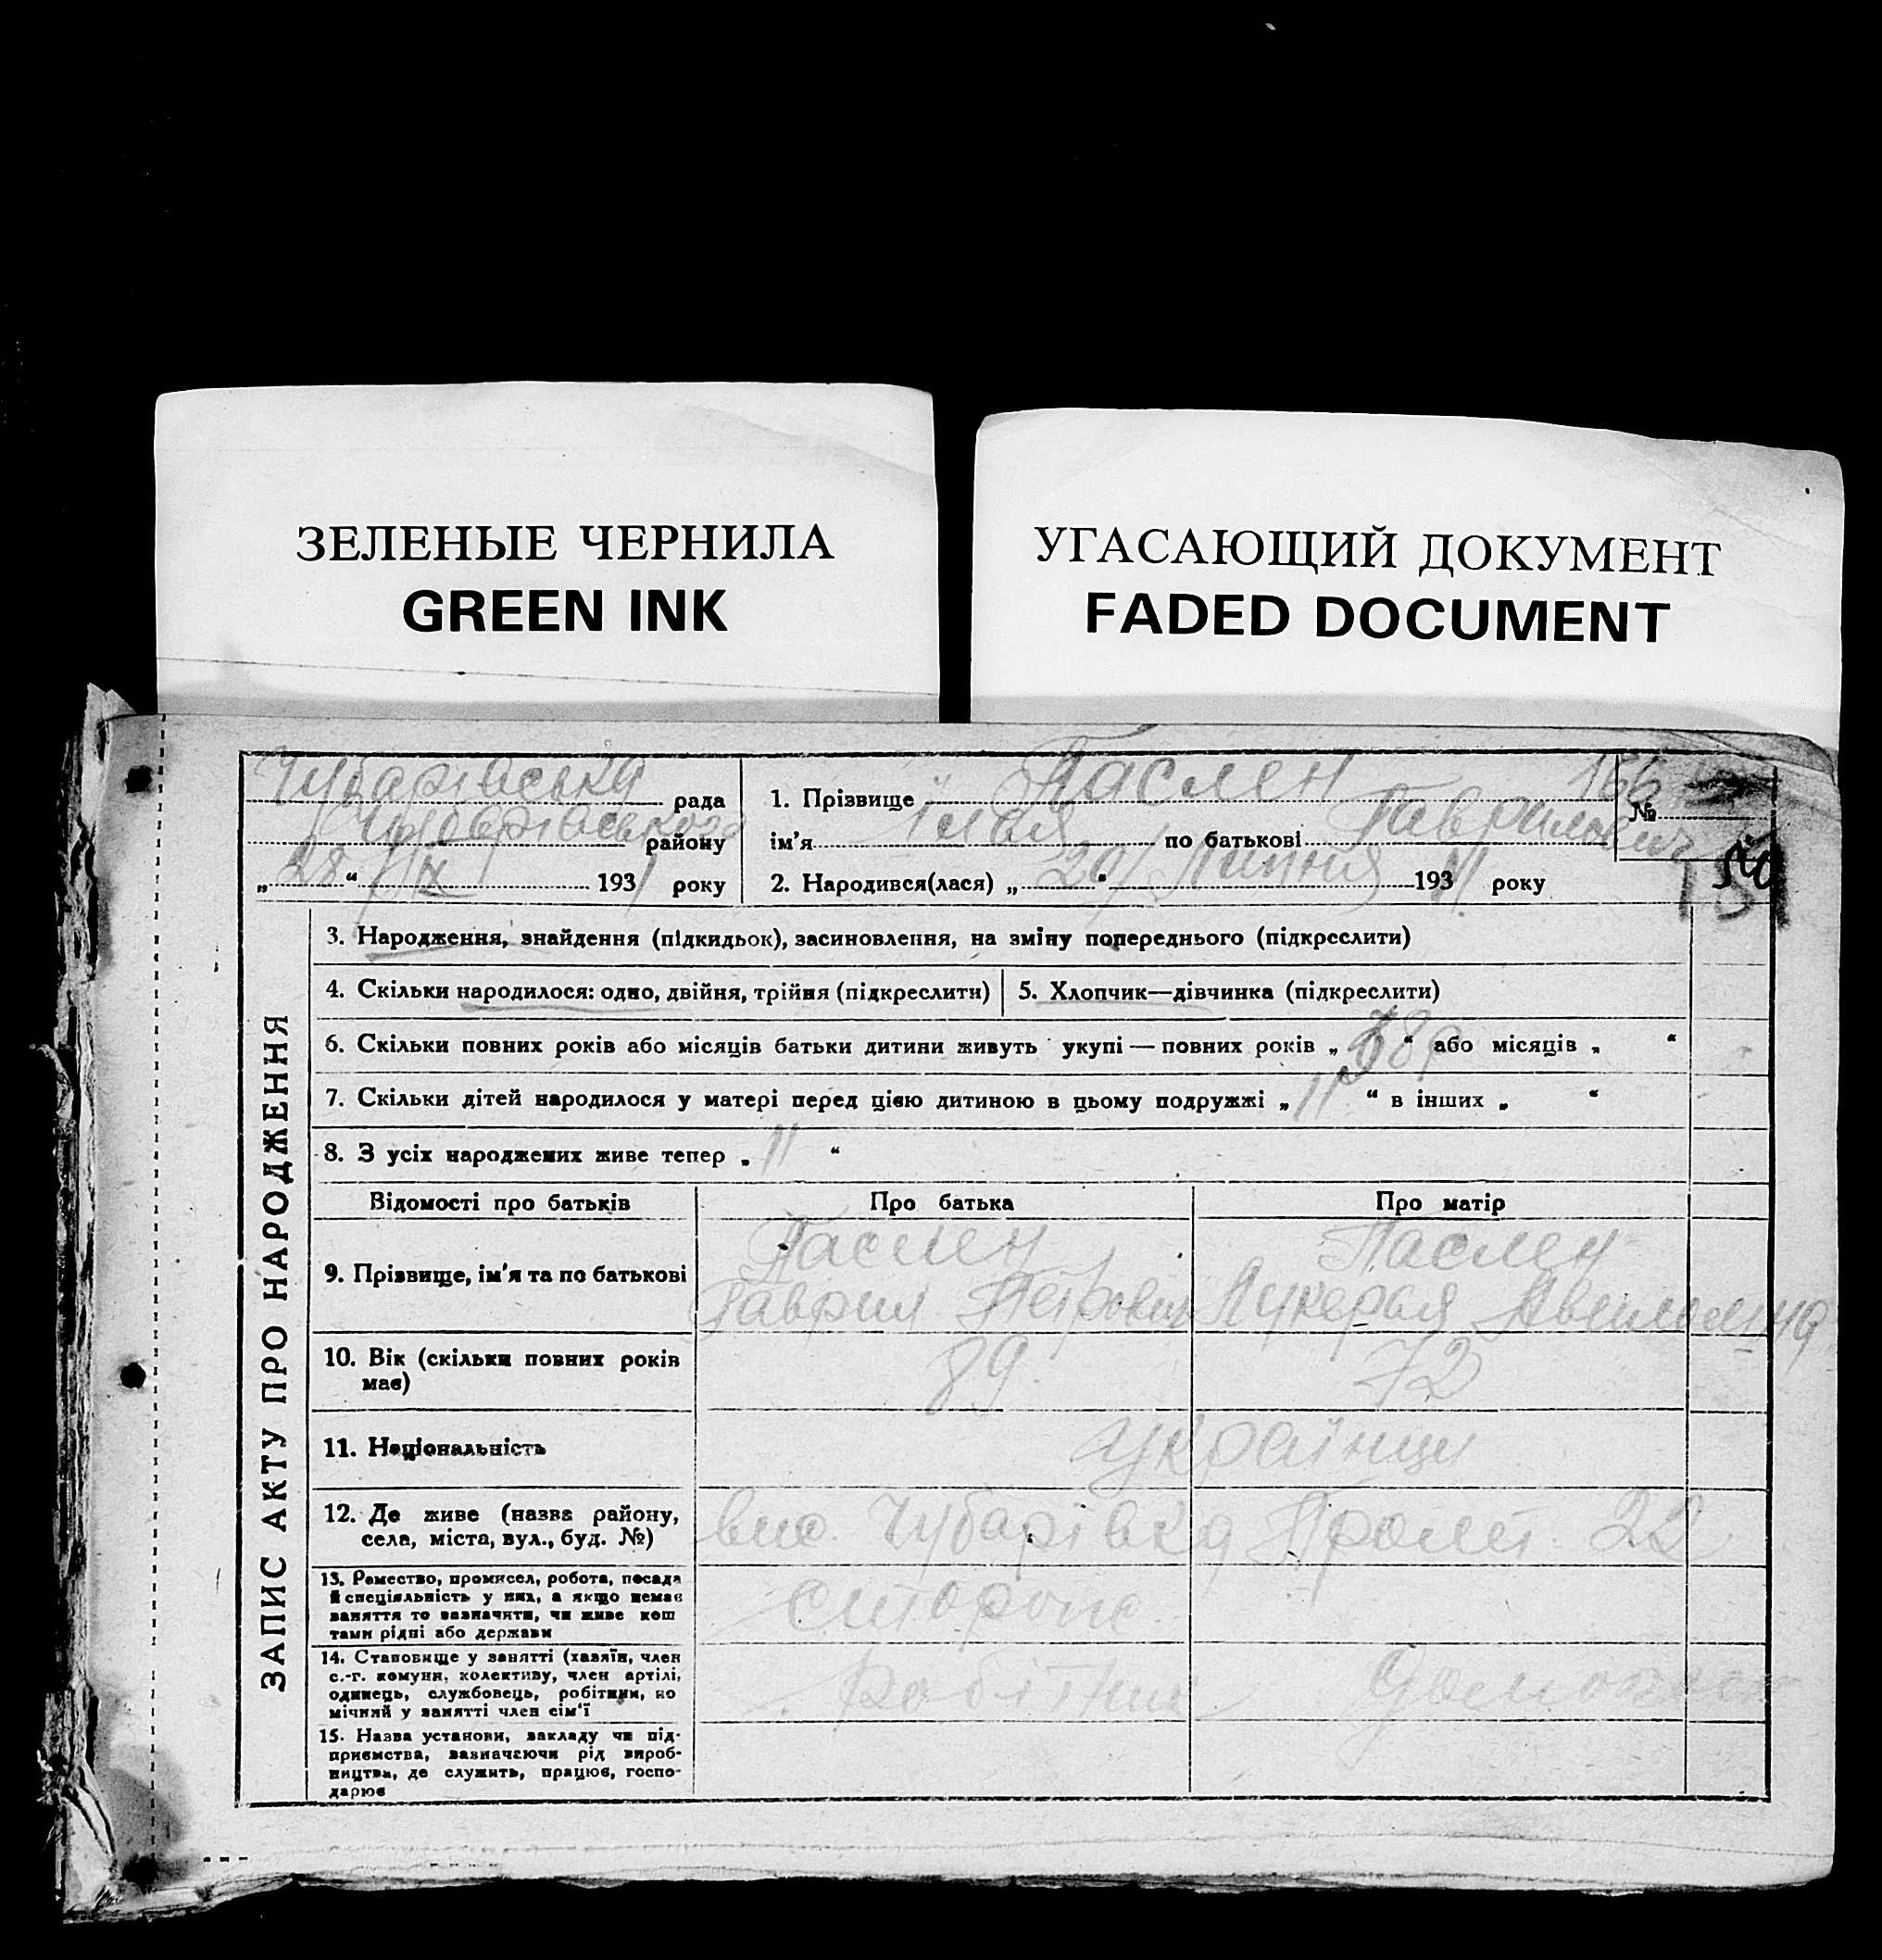 ЗЕЛЕНЫЕ ЧЕРНИЛА
GREEN INK
УГАСАЮЩИЙ ДОКУМЕНТ
FADED DOCUMENT
Чубарівська рада
Чубарівського району
„28“ IX 1931 року
1. Прізвище Паслен
ім'я Ілья по батькові Гаврилович
№ 166
2. Народився(лася) „20“ Липня 1931 року
ЗАПИС АКТУ ПРО НАРОДЖЕННЯ
3. Народження, знайдення (підкидьок), засиновлення, на зміну попереднього (підкреслити)
4. Скільки народилося: одно, двійня, трійня (підкреслити)
5. Хлопчик—дівчинка (підкреслити)
6. Скільки повних років або місяців батьки дитини живуть укупі — повних років „ “ або місяців „ “
7. Скільки дітей народилося у матері перед цією дитиною в цьому подружжі „11“ в інших „ “
8. З усіх народжених живе тепер „11“
Відомості про батьків Про батька Про матір
9. Прізвище, ім'я та по батькові
Паслен
Гаврил Петрович
Паслен
Лукерья
10. Вік (скільки повних років
має)
89
72
11. Національність
Українци
12. Де живе (назва району,
села, міста, вул., буд. №)
Чубарівка Пролет. 22
13. Ремество, промисел, робота, посада
й спеціяльність у них, а якщо немає
заняття то зазначити, чи живе кош
тами рідні або держави
сторож
14. Становище у занятті (хазяїн, член
с.-г. комуни, колективу, член артілі,
одинець, службовець, робітник, по
мічний у занятті член сім'ї
Робітник
15. Назва установи, закладу чи під-
приємства, зазначаючи рід вироб-
ництва, де служить, працює, госпо-
дарює